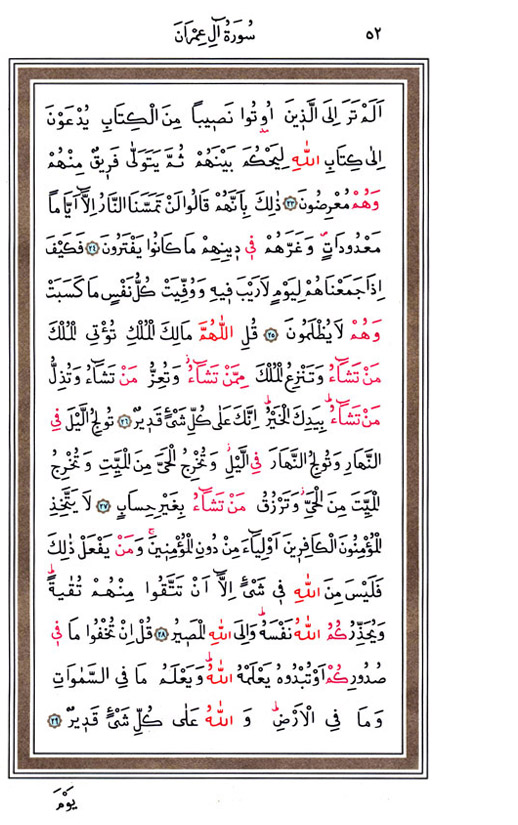 ٥٢ سُورَةُ آلِ عِمْرَانَ
اَلَمْ تَرَ اِلَى الَّذ۪ينَ اُو۫تُوا نَص۪يباً مِنَ الْكِتَابِ يُدْعَوْنَ
اِلٰى كِتَابِ اللّٰهِ لِيَحْكُمَ بَيْنَهُمْ ثُمَّ يَتَوَلّٰى فَر۪يقٌ مِنْهُمْ
وَهُمْ مُعْرِضُونَ ﴿٢٣﴾ ذٰلِكَ بِاَنَّهُمْ قَالُوا لَنْ تَمَسَّنَا النَّارُ اِلَّٓا اَيَّاماً
مَعْدُودَاتٍۖ وَغَرَّهُمْ ف۪ي د۪ينِهِمْ مَا كَانُوا يَفْتَرُونَ ﴿٢٤﴾ فَكَيْفَ
اِذَا جَمَعْنَاهُمْ لِيَوْمٍ لَا رَيْبَ ف۪يهِ وَوُفِّيَتْ كُلُّ نَفْسٍ مَا كَسَبَتْ
وَهُمْ لَا يُظْلَمُونَ ﴿٢٥﴾ قُلِ اللّٰهُمَّ مَالِكَ الْمُلْكِ تُؤْتِي الْمُلْكَ
مَنْ تَشَٓاءُ وَتَنْزِعُ الْمُلْكَ مِمَّنْ تَشَٓاءُۘ وَتُعِزُّ مَنْ تَشَٓاءُ وَتُذِلُّ
مَنْ تَشَٓاءُۜ بِيَدِكَ الْخَيْرُۜ اِنَّكَ عَلٰى كُلِّ شَيْءٍ قَد۪يرٌ ﴿٢٦﴾ تُولِجُ الَّيْلَ فِي
النَّهَارِ وَتُولِجُ النَّهَارَ فِي الَّيْلِۘ وَتُخْرِجُ الْحَيَّ مِنَ الْمَيِّتِ وَتُخْرِجُ
الْمَيِّتَ مِنَ الْحَيِّۘ وَتَرْزُقُ مَنْ تَشَٓاءُ بِغَيْرِ حِسَابٍ ﴿٢٧﴾ لَا يَتَّخِذِ
الْمُؤْمِنُونَ الْكَافِر۪ينَ اَوْلِيَٓاءَ مِنْ دُونِ الْمُؤْمِن۪ينَۚ وَمَنْ يَفْعَلْ ذٰلِكَ
فَلَيْسَ مِنَ اللّٰهِ ف۪ي شَيْءٍ اِلَّٓا اَنْ تَتَّقُوا مِنْهُمْ تُقٰيةًۜ
وَيُحَذِّرُكُمُ اللّٰهُ نَفْسَهُۜ وَاِلَى اللّٰهِ الْمَص۪يرُ ﴿٢٨﴾ قُلْ اِنْ تُخْفُوا مَا ف۪ي
صُدُورِكُمْ اَوْ تُبْدُوهُ يَعْلَمْهُ اللّٰهُۜ وَيَعْلَمُ مَا فِي السَّمٰوَاتِ
وَمَا فِي الْاَرْضِۜ وَاللّٰهُ عَلٰى كُلِّ شَيْءٍ قَد۪يرٌ ﴿٢٩﴾
يَوْمَ